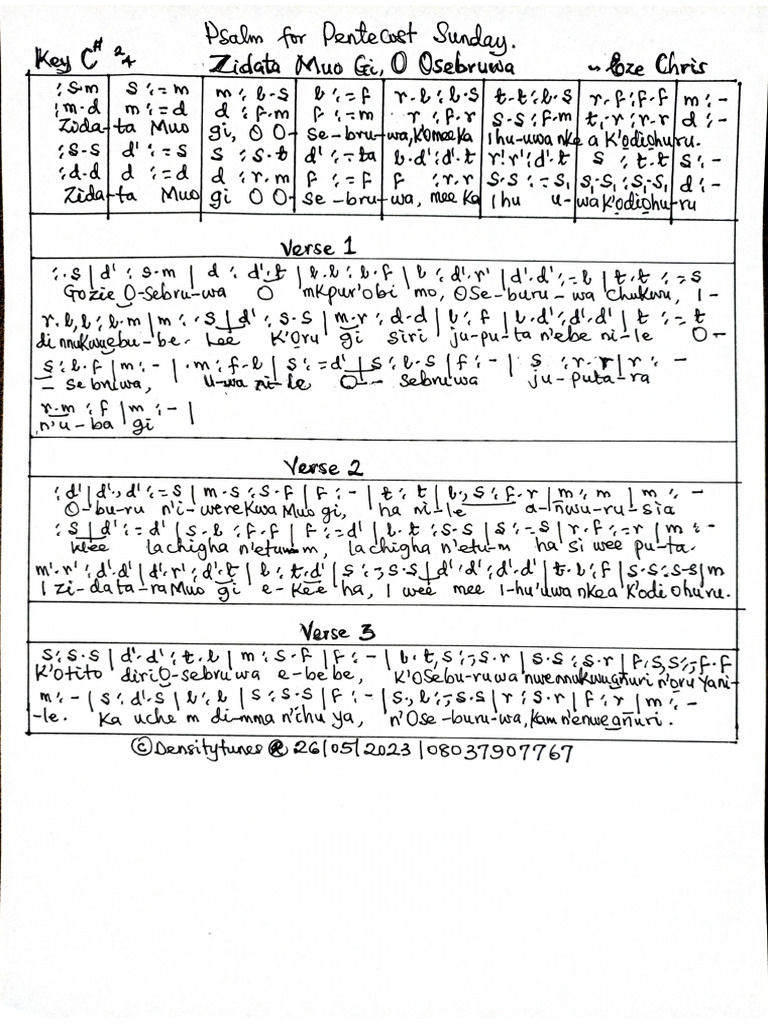 Psalm for Pentecost Sunday.
Key C# 2/4 Zidata Muo Gi, O Osebruwa ~ Eze Chris
: s.m | s :=m | m : l.s | l :=f | r.l : l.s | t.t : l.s | r.f : f.f | m :-
: m.d | m :=d | d : f.m | f :=m | r : f.r | s.s : f.m | t,.r : r.r | d :-
Zida-ta Muo gi, O O- se-bru-wa, k'o mee ka Ihu-uwa nke a k'odiohuru.
: s.s | d' :=s | s : s.t | d' :=ta | l.d' : d'.t | r'.r' : d'.t | s : t.t | s :-
: d.d | d :=d | d : r.m | f :=f | f : r.r | s.s :=s, | s,.s, : s,.s, | d :-
Zida-ta Muo gi O O- se-bru-wa, mee ka Ihu u-wa k'odiohu-ru
Verse 1
: . s | d' : s.m | d : d'.t | l.l : l.f | l : d'.r' | d'.d' :=l | t.t :=s
Gozie O-sebru-wa O mkpur'obi mo, O Se-buru-wa chukwu, I-
r.l, l : l.m | m : .s | d' : s.s | m.r : d.d | l : f | l.d' : d'.d' | t := t
di nnukwu ebu-be. Lee K'oru gi siri ju-pu-ta n'ebe ni-le O-
s : l.f | m :- | . m : f.l | s :=d' | s : l.s | f :- | s : r.r | r :-
- se bruwa, u-wa ni-le O-- sebruwa ju-puta-ra
r.m : f | m :- |
n'u-ba gi
Verse 2
: d' | d'., d' :=s | m.s : s.f | f :- | t : t | l, s : f.r | m : m | m :-
O-bu-ru n'i-were Kwa Muo gi, ha ni-le a-nwu-ru-sia
: s | d' :=d' | s.l : f.f | f :=d' | l.t : s.s | s :=s | r.f :=r | m :-
Wee lachigha n'etu-m, lachigha n'etu-m ha si wee pu-ta.
m'.r' : d'.d' | d'.r' : d'.t | l : t.d' | s :-, s.s | d'.d' : d'.d' | t.l : f | s.s : s-s | m
I zi-data-ra Muo gi e-kee ha, I wee mee I-hu'uwa nke a k'odi ohuru.
Verse 3
s : s.s | d'.d' : t.l | m : s.f | f :- | l.t, s :-, s.r | s.s : s.r | f, s, s :-, f.f
K'otito diri O-sebruwa e-bebe, K'O Sebu-ru wa nwe nnukwu añuri n'oru ya ni-
m :- | s : d'.s | l : l | s : s.s | f :- | s., l :-, s.s | r : s.r | f : r | m :-
-le. Ka uche m di-mma n'ihu ya, n'Ose-buru-wa, kam n'enwe añuri.
©Densitytunes @ 26/05/2023 / 08037907767